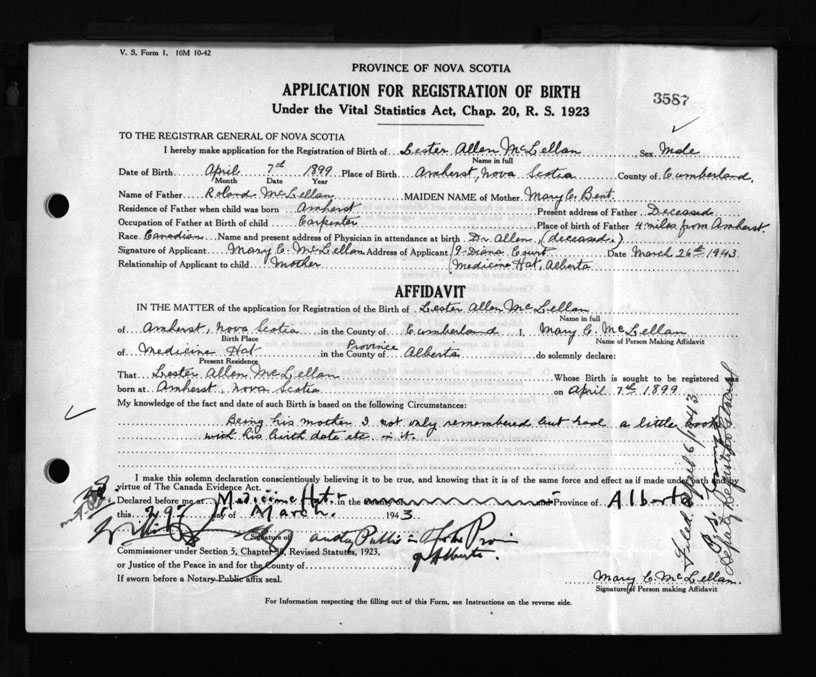 V. S. Form 1, 10M 10-42
PROVINCE OF NOVA SCOTIA
APPLICATION FOR REGISTRATION OF BIRTH
3587
Under the Vital Statistics Act, Chap. 20, R. S. 1923
TO THE REGISTRAR GENERAL OF NOVA SCOTIA
I hereby make application for the Registration of Birth of Lester Allen McLellan Sex Male
Name in full
Date of Birth April 7th 1899 Place of Birth Amherst, Nova Scotia County of Cumberland.
Month Date Year
Name of Father Roland McLellan MAIDEN NAME of Mother Mary C. Bent.
Residence of Father when child was born Amherst Present address of Father Deceased
Occupation of Father at Birth of child Carpenter Place of birth of Father 4 miles from Amherst.
Race Canadian Name and present address of Physician in attendance at birth Dr Allen (deceased.)
Signature of Applicant Mary C. McLellan Address of Applicant 9-Diana Court Date March 26th 1943
Relationship of Applicant to child Mother Medicine Hat, Alberta
AFFIDAVIT
IN THE MATTER of the application for Registration of the Birth of Lester Allen McLellan
Name in full
of Amherst, Nova Scotia in the County of Cumberland I, Mary C. McLellan
Birth Place Name of Person Making Affidavit
of Medicine Hat in the County of Province Alberta do solemnly declare:
Present Residence
That Lester Allen McLellan Whose Birth is sought to be registered was
born at Amherst, Nova Scotia on April 7th 1899
My knowledge of the fact and date of such Birth is based on the following Circumstances:
Being his mother I not only remembered but had a little book
with his birth date etc. in it.
I make this solemn declaration conscientiously believing it to be true, and knowing that it is of the same force and effect as if made under oath and by
virtue of The Canada Evidence Act.
Declared before me at Medicine Hat in the Province of Alberta
this 29th day of March. 1943.
Signature of
a Notary Public in & for the Province
of Alberta.
Commissioner under Section 5, Chapter Revised Statutes, 1923,
or Justice of the Peace in and for the County of
If sworn before a Notary Public affix seal.
Mary C. McLellan.
Signature of Person making Affidavit
For Information respecting the filling out of this Form, see Instructions on the reverse side.
Filed April 6/1943.
Deputy Registrar General